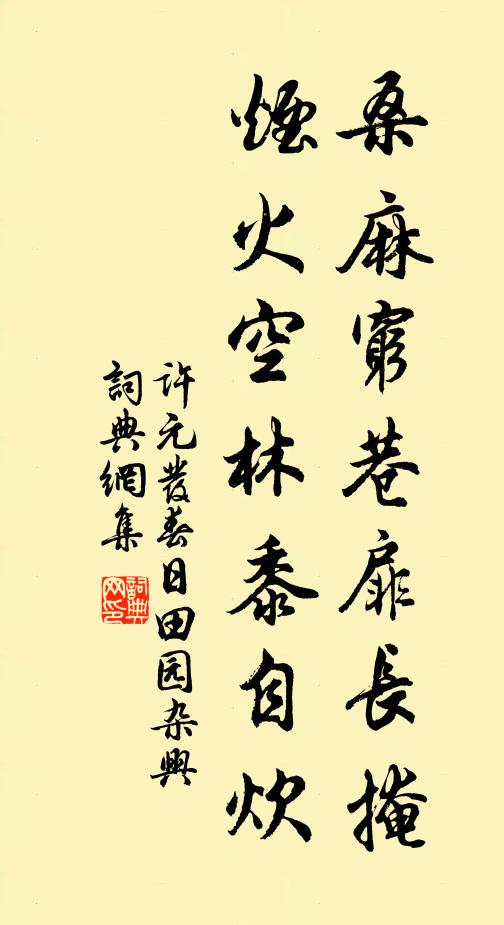 桑麻窮巷扉長掩
煙火空林黍自炊
许元發春日田园杂興
詞典網集
詞典网印